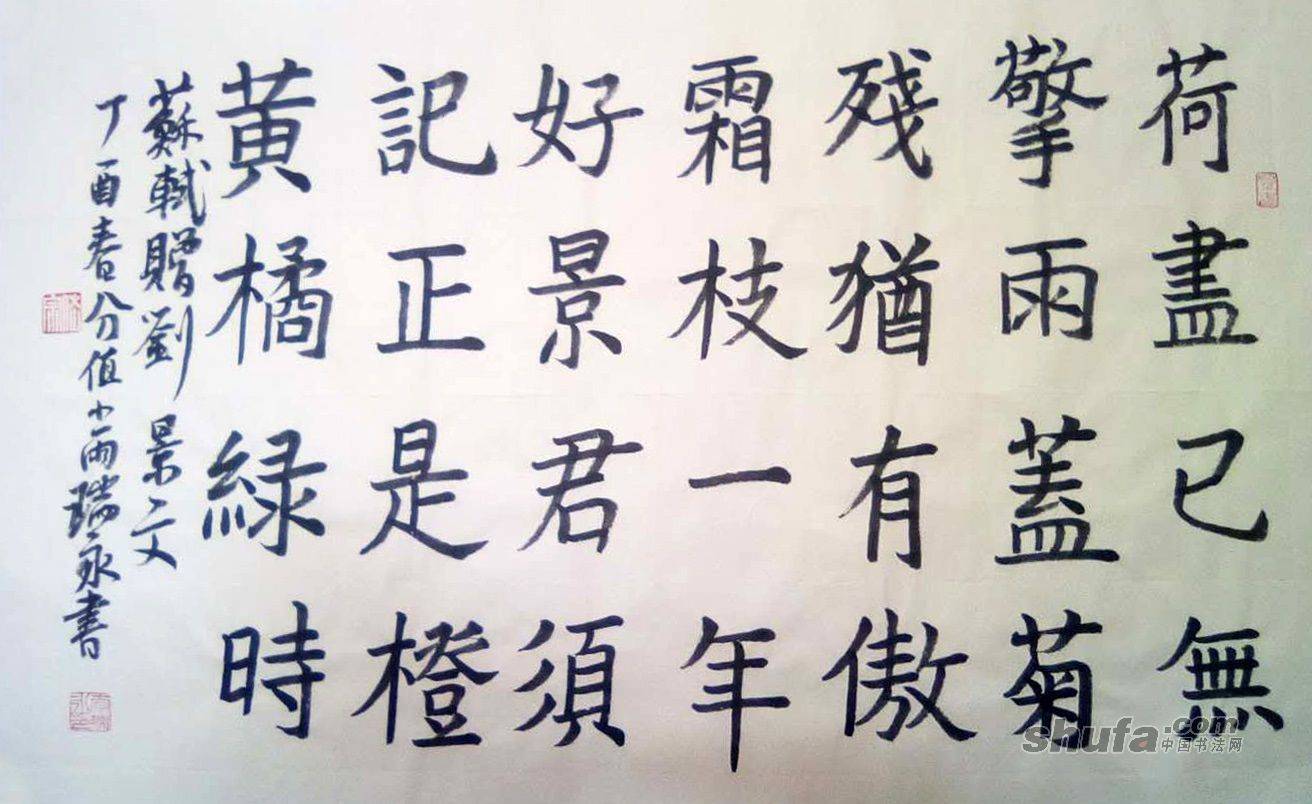 荷盡已無
擎雨蓋菊
殘猶有傲
霜枝一年
好景君須
記正是橙
黄橘緑時
蘇軾贈劉景文
丁酉春分值小雨瑞永書
shufa.com
中国书法网